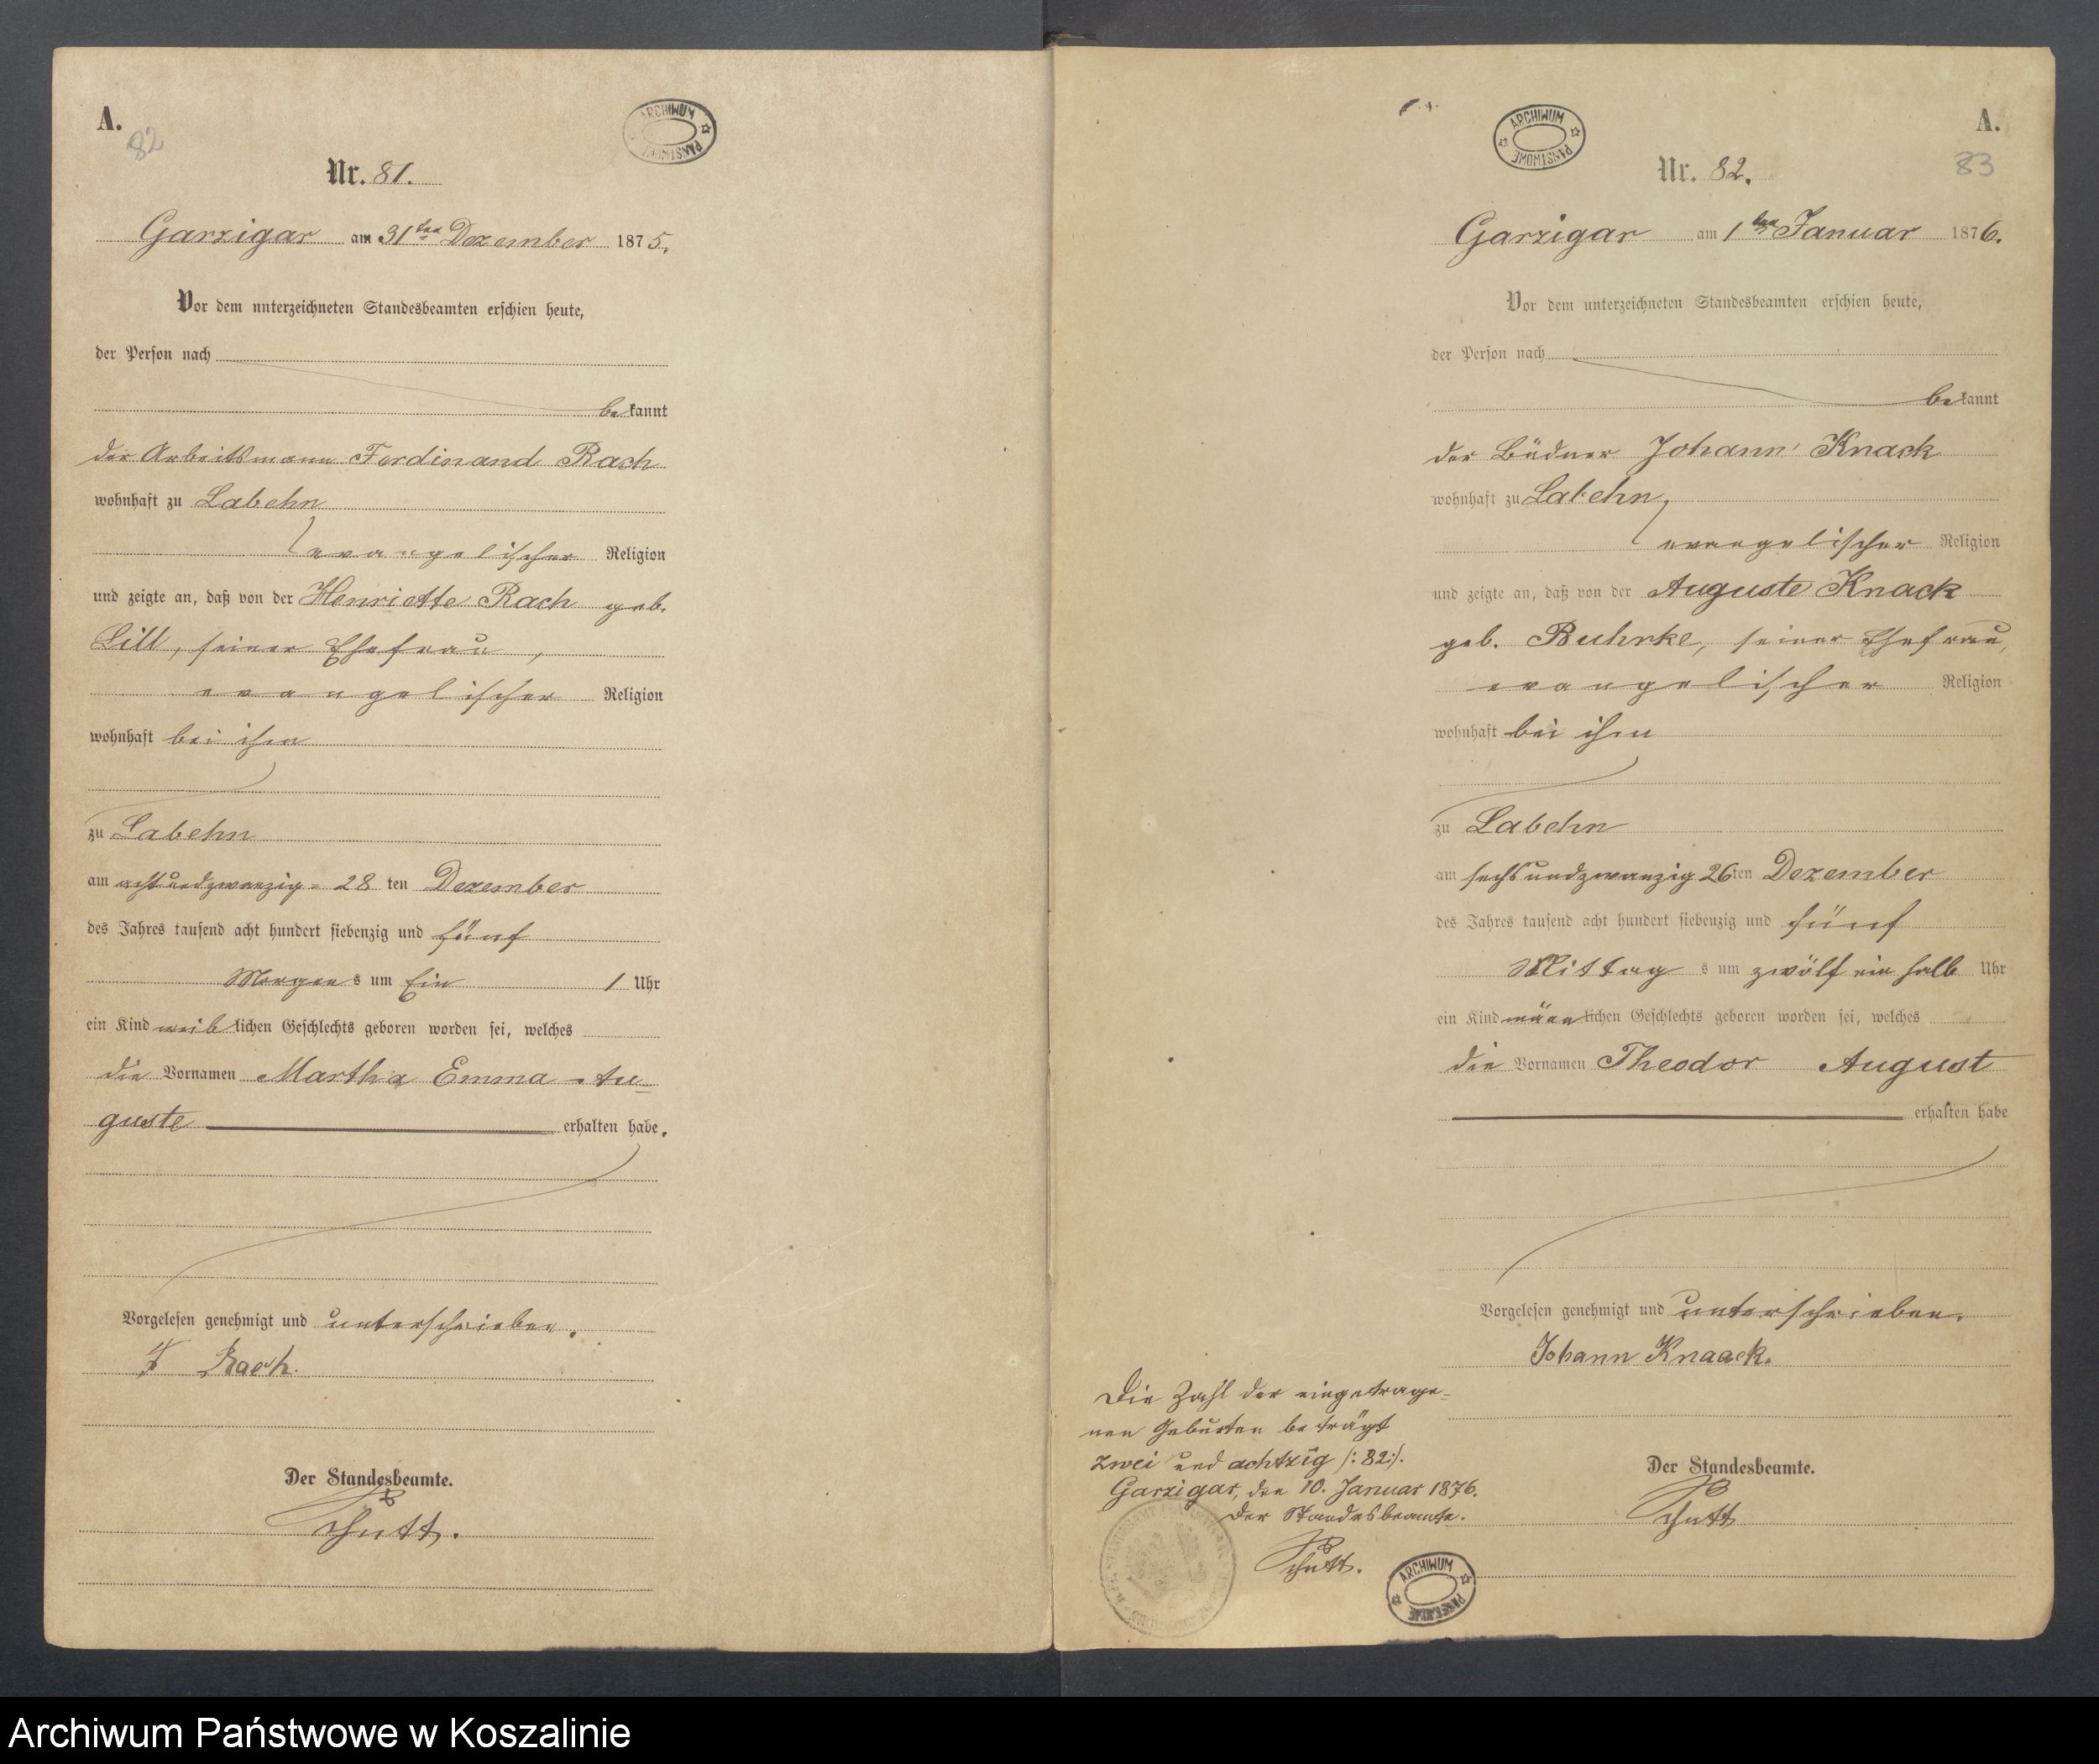 A.
82
ARCHIWUM PAŃSTWOWE
Nr. 81.
Garzigar am 31ten Dezember 1875.
Vor dem unterzeichneten Standesbeamten erschien heute,
der Person nach
bekannt
der Arbeitsmann Ferdinand Rach
wohnhaft zu Labehn
evangelischer Religion
und zeigte an, daß von der Henriette Rach geb.
Lill, seiner Ehefrau,
evangelischer Religion
wohnhaft bei ihm
zu Labehn
am achtundzwanzig = 28 ten Dezember
des Jahres tausend acht hundert siebenzig und fünf
Morgens um Ein 1 Uhr
ein Kind weiblichen Geschlechts geboren worden sei, welches
die Vornamen Martha Emma Au=
guste erhalten habe.
Vorgelesen genehmigt und unterschrieben.
F Rach.
Der Standesbeamte.
Schütt.
A.
83
ARCHIWUM PAŃSTWOWE
Nr. 82.
Garzigar am 1ten Januar 1876.
Vor dem unterzeichneten Standesbeamten erschien heute,
der Person nach
bekannt
der Büdner Johann Knack
wohnhaft zu Labehn,
evangelischer Religion
und zeigte an, daß von der Auguste Knack
geb. Buhrke, seiner Ehefrau,
evangelischer Religion
wohnhaft bei ihm
zu Labehn
am sechsundzwanzig 26ten Dezember
des Jahres tausend acht hundert siebenzig und fünf
Mittags um zwölf ein halb Uhr
ein Kind männlichen Geschlechts geboren worden sei, welches
die Vornamen Theodor August
erhalten habe
Vorgelesen genehmigt und unterschrieben.
Johann Knaack.
Der Standesbeamte.
Schütt
Die Zahl der eingetrage=
nen Geburten beträgt
zwei und achtzig /: 82 :/.
Garzigar, den 10. Januar 1876.
Der Standesbeamte.
Schütt.
ARCHIWUM PAŃSTWOWE
Archiwum Państwowe w Koszalinie